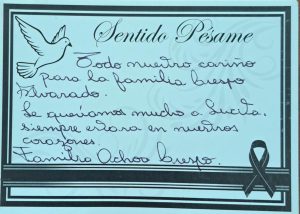 Sentido Pésame
Todo nuestro cariño
para la familia Crespo
Alvarado.
Le queriamos mucho a Lucila,
siempre estara en nuestros
corazones
Familia Ochoa Crespo.